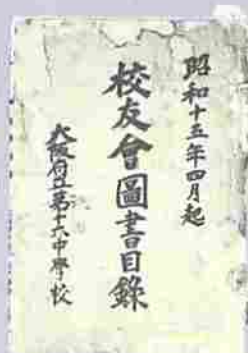 昭和十五年四月起
校友會圖書目錄
大阪府立第十六中學校